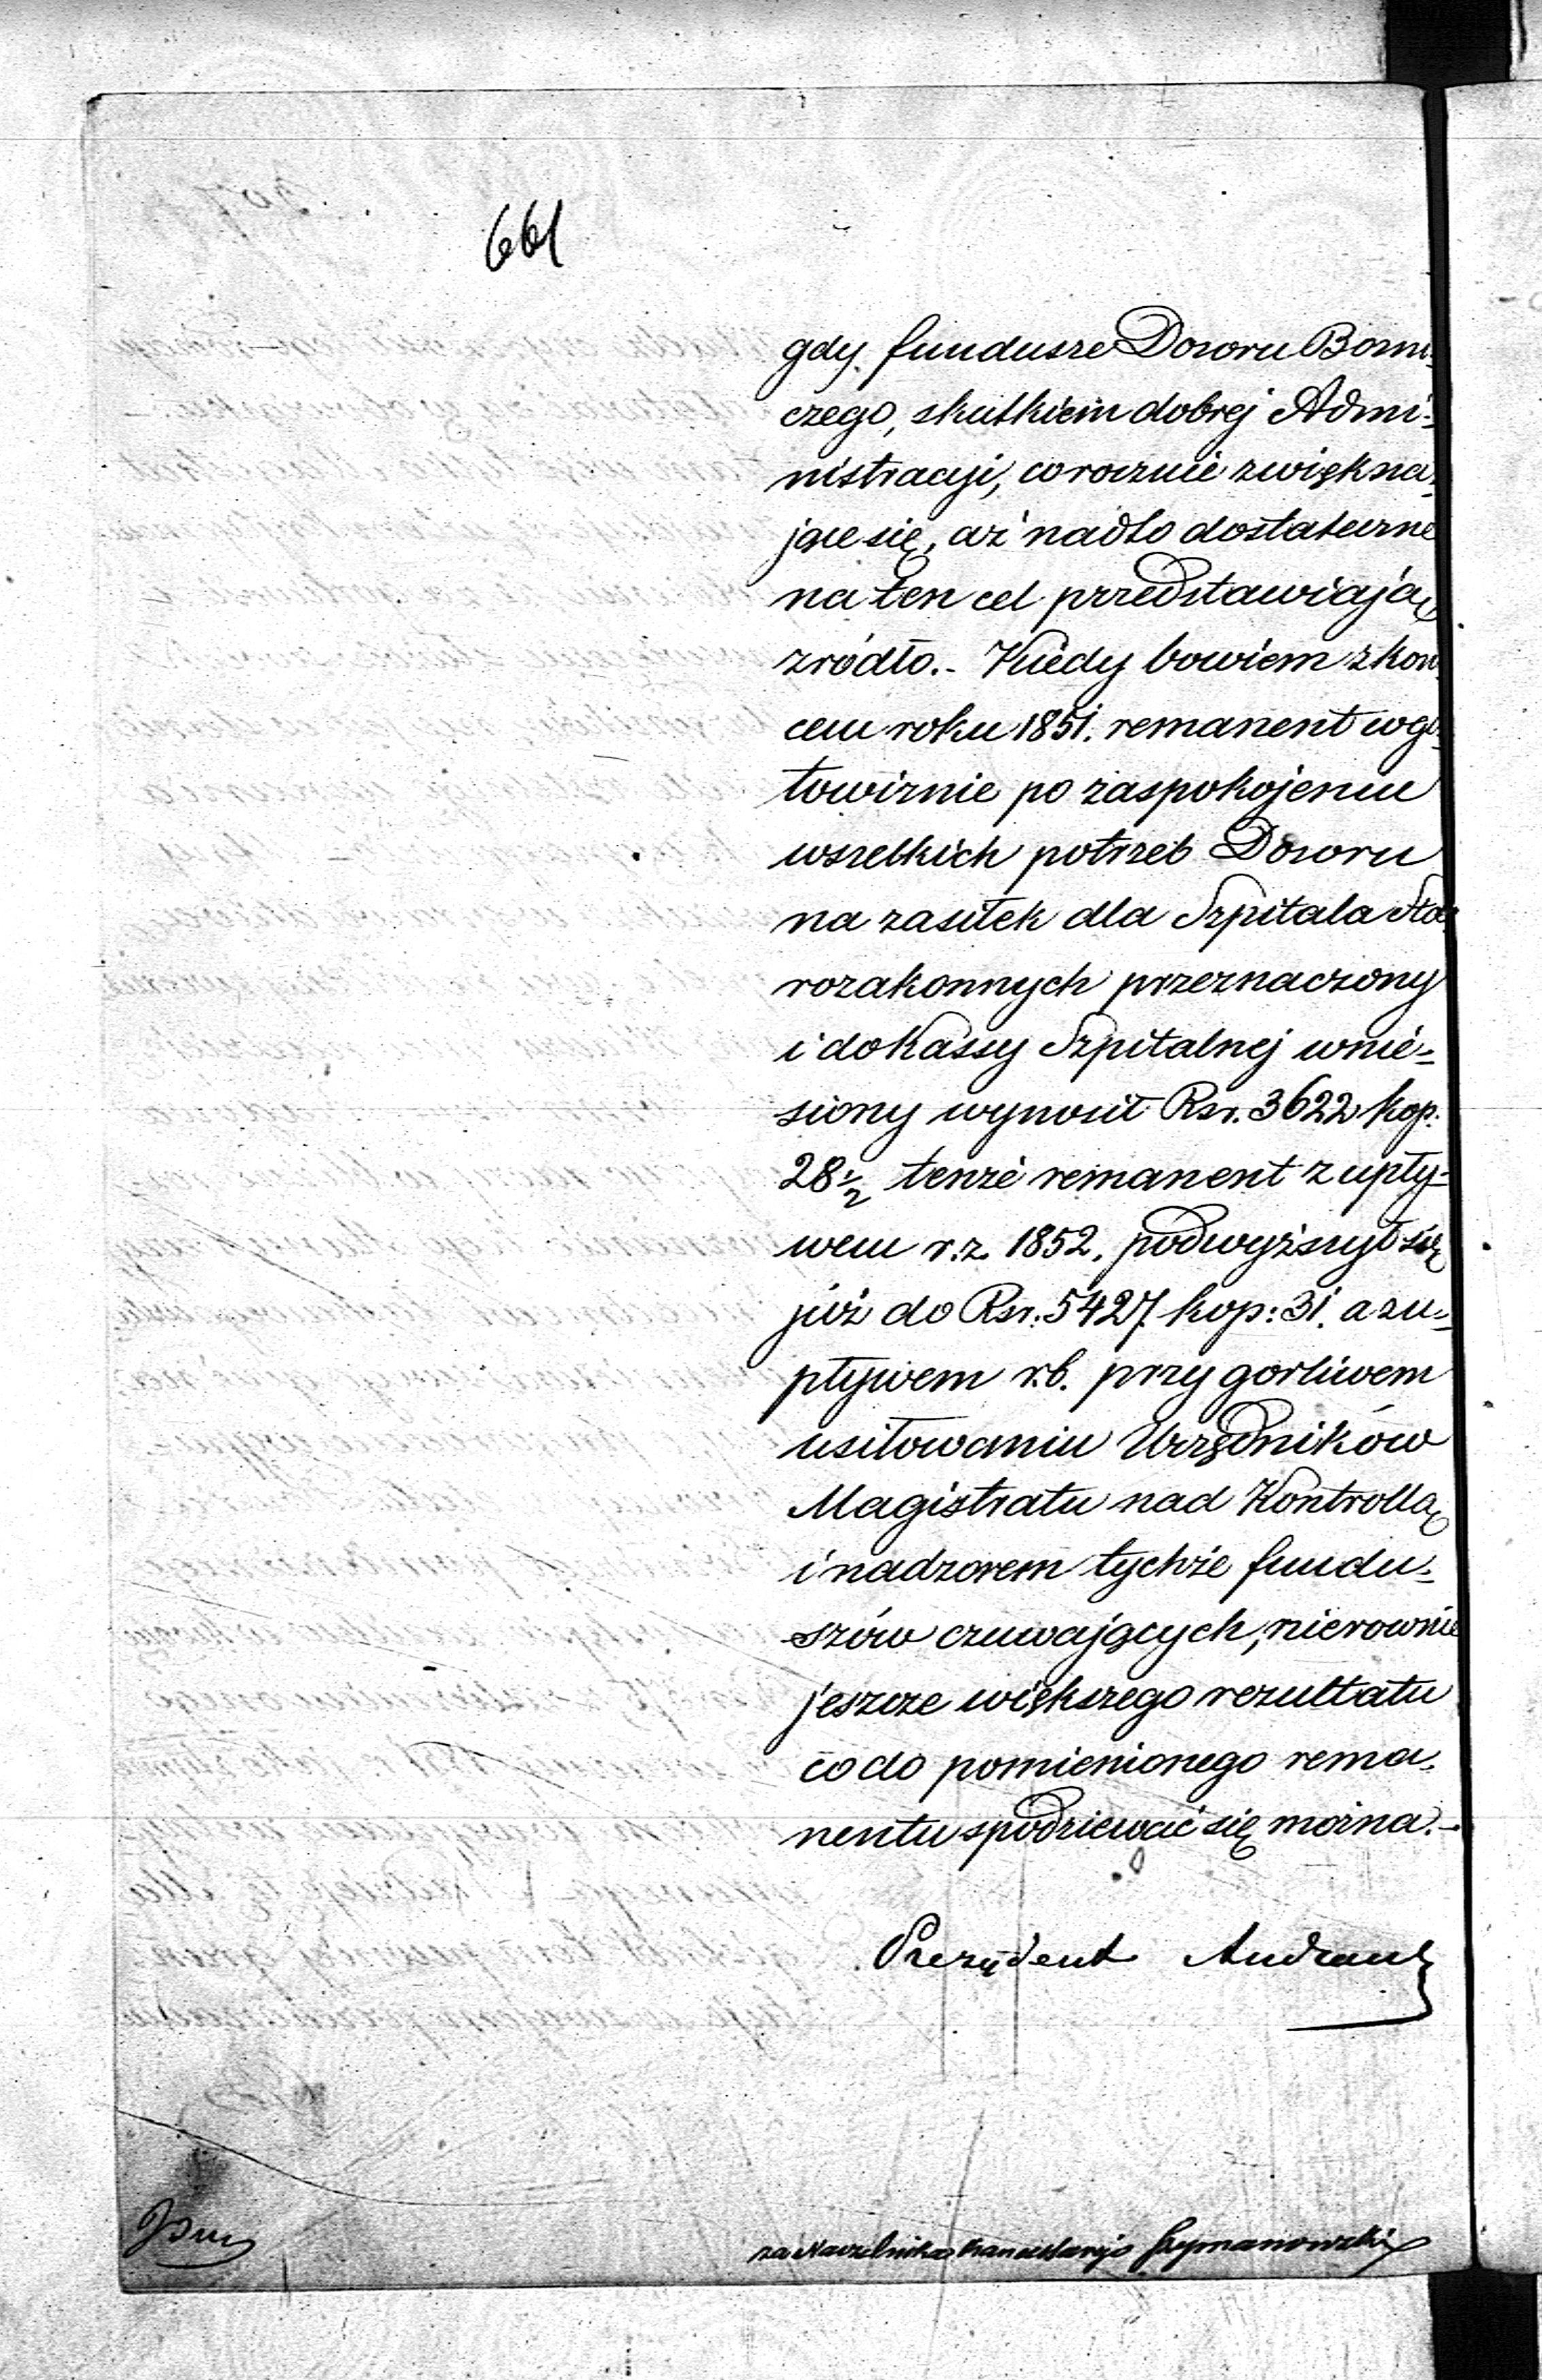 661
gdy fundusze Dozoru Bożni-
czego, skutkiem dobrej Admi-
nistracyi, corocznie zwiększa-
jące się, aż nadto dostateczne
na ten cel przedstawiają
źródło.- Kiedy bowiem z koń-
cem roku 1851. remanent w go-
towiznie po zaspokojeniu
wszelkich potrzeb Dozoru
na zasiłek dla Szpitala Sta-
rozakonnych przeznaczony
i do Kassy Szpitalnej wnie-
siony wynosił Rsr. 3622 kop.
28 1/2 tenże remanent z upły-
wem r. z. 1852. podwyższył się
już do Rsr: 5427. kop: 31. a z u-
pływem r.b. przy gorliwem
usiłowaniu Urzędników
Magistratu nad Kontrollą
i nadzorem tychże fundu-
szów czuwających, nierównie
jeszcze większego rezultatu
co do pomienionego rema-
nentu spodziewać się można.-
Prezydent Andrault
za Naczelnika Kancellaryi Szymanowski